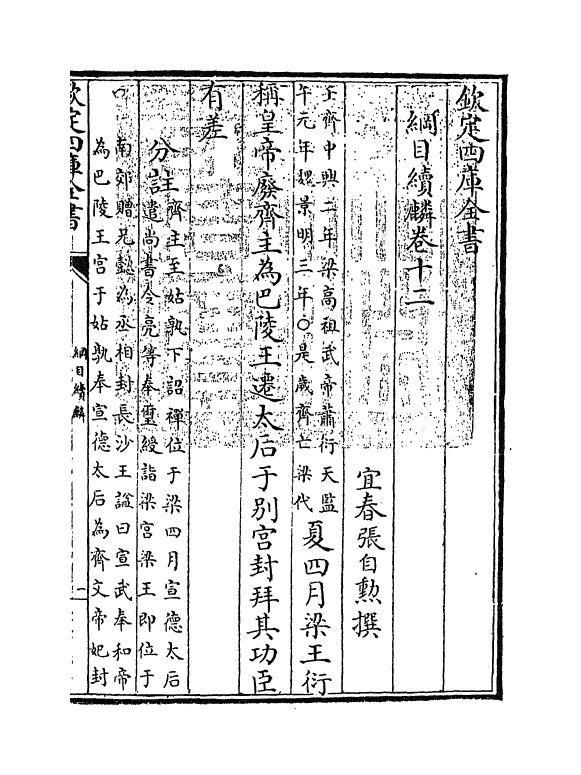 欽定四庫全書
綱目續麟卷十二
宜春張自勲撰
壬齊中興二年梁髙祖武帝蕭衍天監
午元年魏景明三年○是歲齊亡梁代
夏四月梁王衍
稱皇帝廢齊主為巴陵王遷太后于别宫封拜其功臣
有差
分註齊主至姑孰下詔禪位于梁四月宣德太后
遣尚書令亮等奉璽綬詣梁宫梁王即位于
南郊贈兄懿為丞相封長沙王諡曰宣武奉和帝
為巴陵王宫于姑孰奉宣德太后為齊文帝妃封
欽定四庫全書
綱目續麟
一